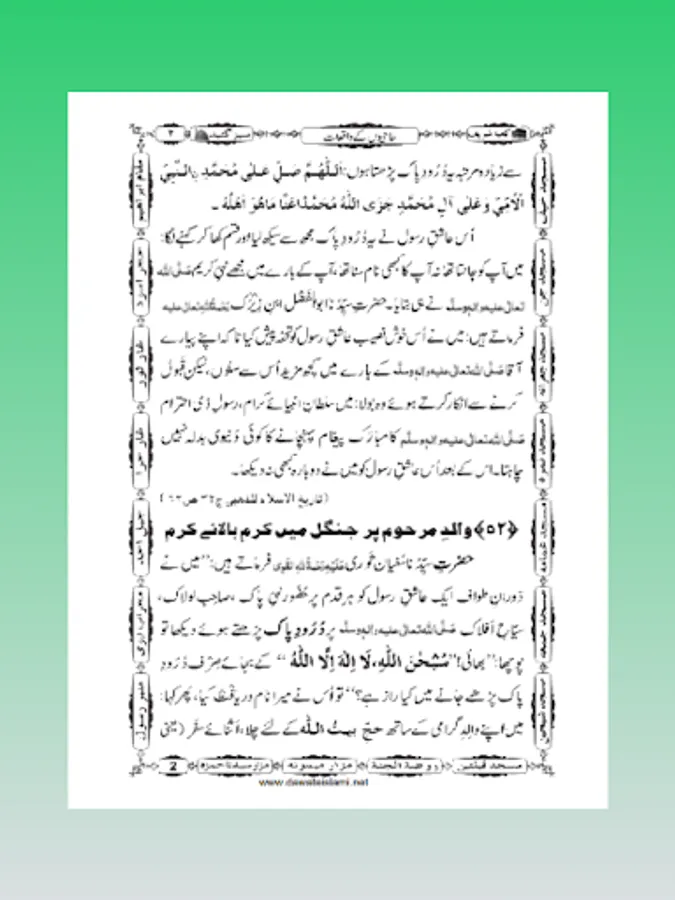 کعبہ شریف حاجیوں کے واقعات سبز گنبد ۲
سے زیادہ مرتبہ یہ دُرُودِ پاک پڑھتا ہوں: اَللّٰهُمَّ صَلِّ عَلٰی مُحَمَّدِ نِ النَّبِیِّ
الْاُمِّیِّ وَعَلٰی اٰلِ مُحَمَّدٍ جَزَی اللّٰهُ مُحَمَّدًا عَنَّا مَا هُوَ اَهْلُهٗ ۔
اُس عاشقِ رسول نے یہ دُرُودِ پاک مجھ سے سیکھ لیا اور قسم کھا کر کہنے لگا:
میں آپ کو جانتا تھا نہ آپ کا کبھی نام سنا تھا، آپ کے بارے میں مجھے نبیِّ کریم صَلَّی اللّٰهُ
تَعَالٰی عَلَیْهِ وَاٰلِهٖ وَسَلَّم نے ہی بتایا۔ حضرتِ سیِّدُنا ابوالْفَضْل ابنِ زِیْرَک رَحْمَةُ اللّٰهِ تَعَالٰی عَلَیْه
فرماتے ہیں: میں نے اُس خوش نصیب عاشقِ رسول کو تحفہ پیش کیا تاکہ اپنے پیارے
آقا صَلَّی اللّٰهُ تَعَالٰی عَلَیْهِ وَاٰلِهٖ وَسَلَّم کے بارے میں کچھ مزید اُس سے سنوں، لیکن قَبول
کرنے سے انکار کرتے ہوئے وہ بولا: میں سلطانِ انبیائے کرام، رسولِ ذِی احترام
صَلَّی اللّٰهُ تَعَالٰی عَلَیْهِ وَاٰلِهٖ وَسَلَّم کا مبارَک پیغام پہنچانے کا کوئی دُنیوی بدلہ نہیں
چاہتا۔ اس کے بعد اُس عاشقِ رسول کو میں نے دوبارہ کبھی نہ دیکھا۔
(تاریخ الاسلام للذهبی ج۳۲ ص۶۲)
﴿۵۲﴾ والِدِ مرحوم پر جنگل میں کرم بالائے کرم
حضرتِ سیِّدُنا سُفیان ثَوری عَلَیْهِ رَحْمَةُ اللّٰهِ الْقَوِی فرماتے ہیں: ”میں نے
دَورانِ طواف ایک عاشقِ رسول کو ہر قدم پر حُضُور نبیِّ پاک، صاحِبِ لَولاک،
سیّاحِ اَفلاک صَلَّی اللّٰهُ تَعَالٰی عَلَیْهِ وَاٰلِهٖ وَسَلَّم پر دُرُودِ پاک پڑھتے ہوئے دیکھا تو
پوچھا: ”بھائی! ”سُبْحٰنَ اللّٰهِ، لَا اِلٰهَ اِلَّا اللّٰهُ“ کے بجائے صِرف دُرُودِ
پاک پڑھے جانے میں کیا راز ہے؟“ تو اُس نے میرا نام دریافْت کیا، پھر کہا:
میں اپنے والدِ گرامی کے ساتھ حجِّ بیتُ اللّٰه کے لئے چلا، اَثنائے سفر (یعنی
مقام ابراهیم
حجر اسود
غار ثور
غار حرا
جبل احد
محراب نبوی
منبر رسول
مسجد خیف
مسجد جن
مسجد جعرانه
مسجد غمامه
مسجد جمعه
2 مزار سیدنا حمزه مزار میمونه روضة الجنة مسجد قبلتین
www.dawateislami.net